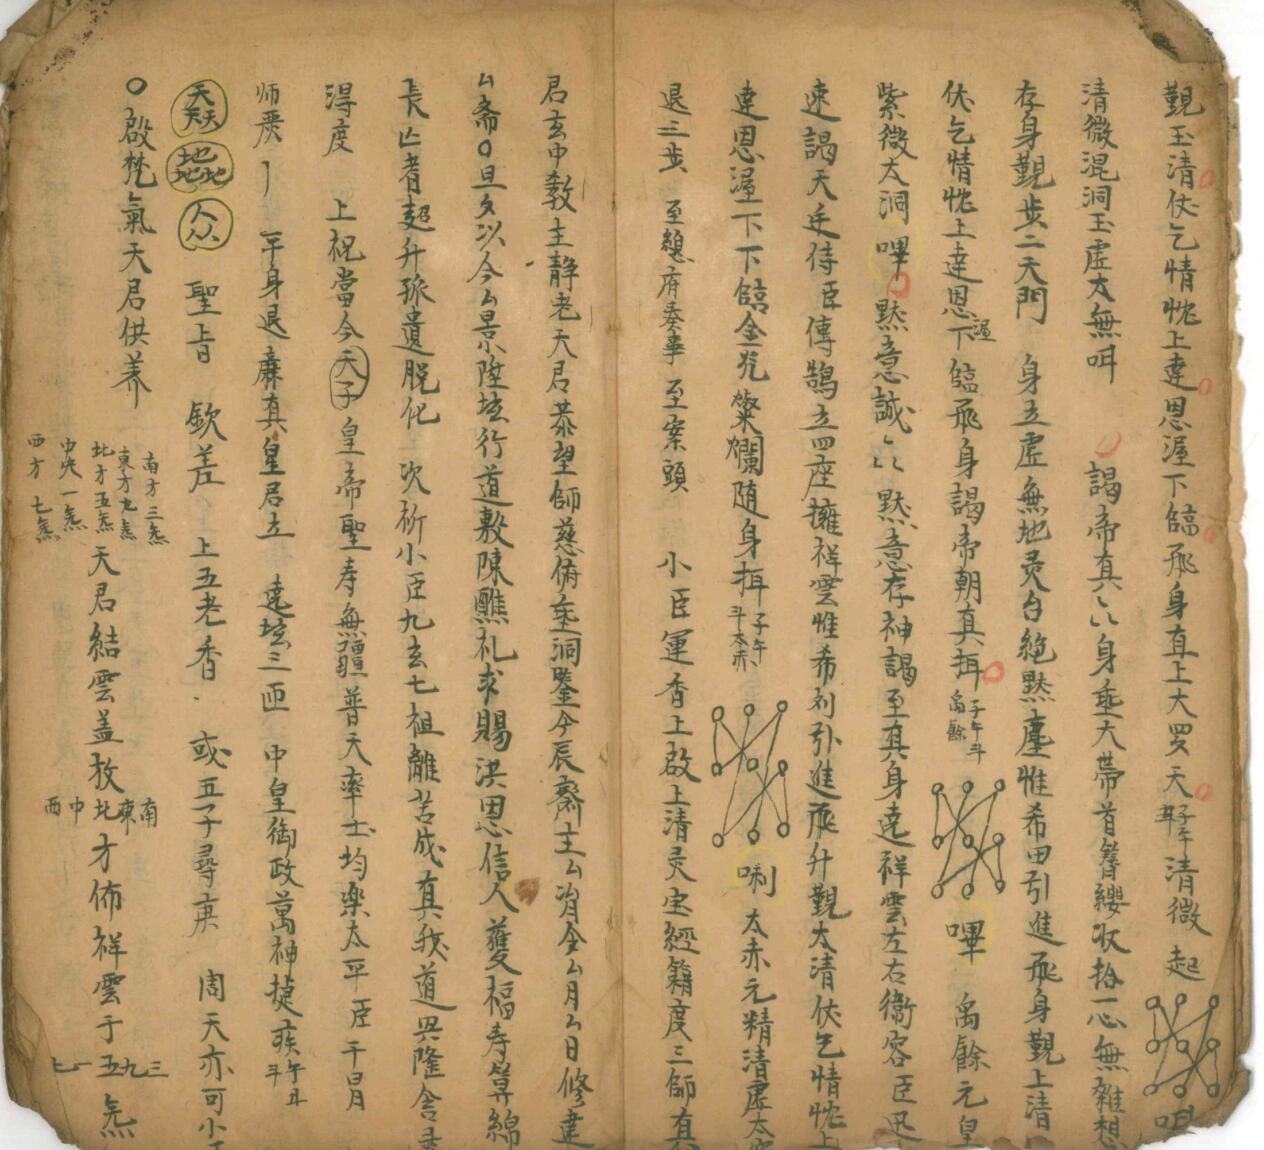 覲玉清伏乞情悃上達恩渥下臨飛身直上大罗天清微起
清微混洞玉虚太無呾謁帝真〻身乘天帶首簪纓收拾一心無雜想
存身覲步二天門身立虚無地灵台絶點塵惟希田引進飛身覲上清
伏乞情悃上達恩渥下臨飛身謁帝朝真揖子午斗禹餘嗶禹餘元皇
紫微太洞嗶默意誠〻默意存神謁至真身遶祥雲左右衛容臣迅
速謁天廷侍臣傳鵠立四座擁祥雲惟希列引進飛升覲太清伏乞情悃上
達恩渥下下臨金光燦爛随身揖子午斗太赤唎太赤元精清虚太
退三步至總府奏事至案頭小臣運香上啟上清灵宝經籍度三師真
君玄中教主静老天君恭望師慈俯垂洞鑒今辰齋主厶月厶日修建
厶斋〇旦夕以今厶景陞壇行道敷陳醮礼求賜洪恩信人獲福寿算綿
長亡者超升孤遺脱化次祈小臣九玄七祖離苦成真我道興隆含
得度上祝當今天子皇帝聖寿無疆普天率土均樂太平臣干冒
师平身退廉真皇君立遶坛三匝中皇御政萬神捷疾午丑斗
聖旨欽差上五老香或五子尋庚周天亦可小
〇啟梵氣天君供养南方三炁東方九炁北方五炁中央一炁西方七炁天君結雲盖放南東北中西方佈祥雲于三九五一七炁